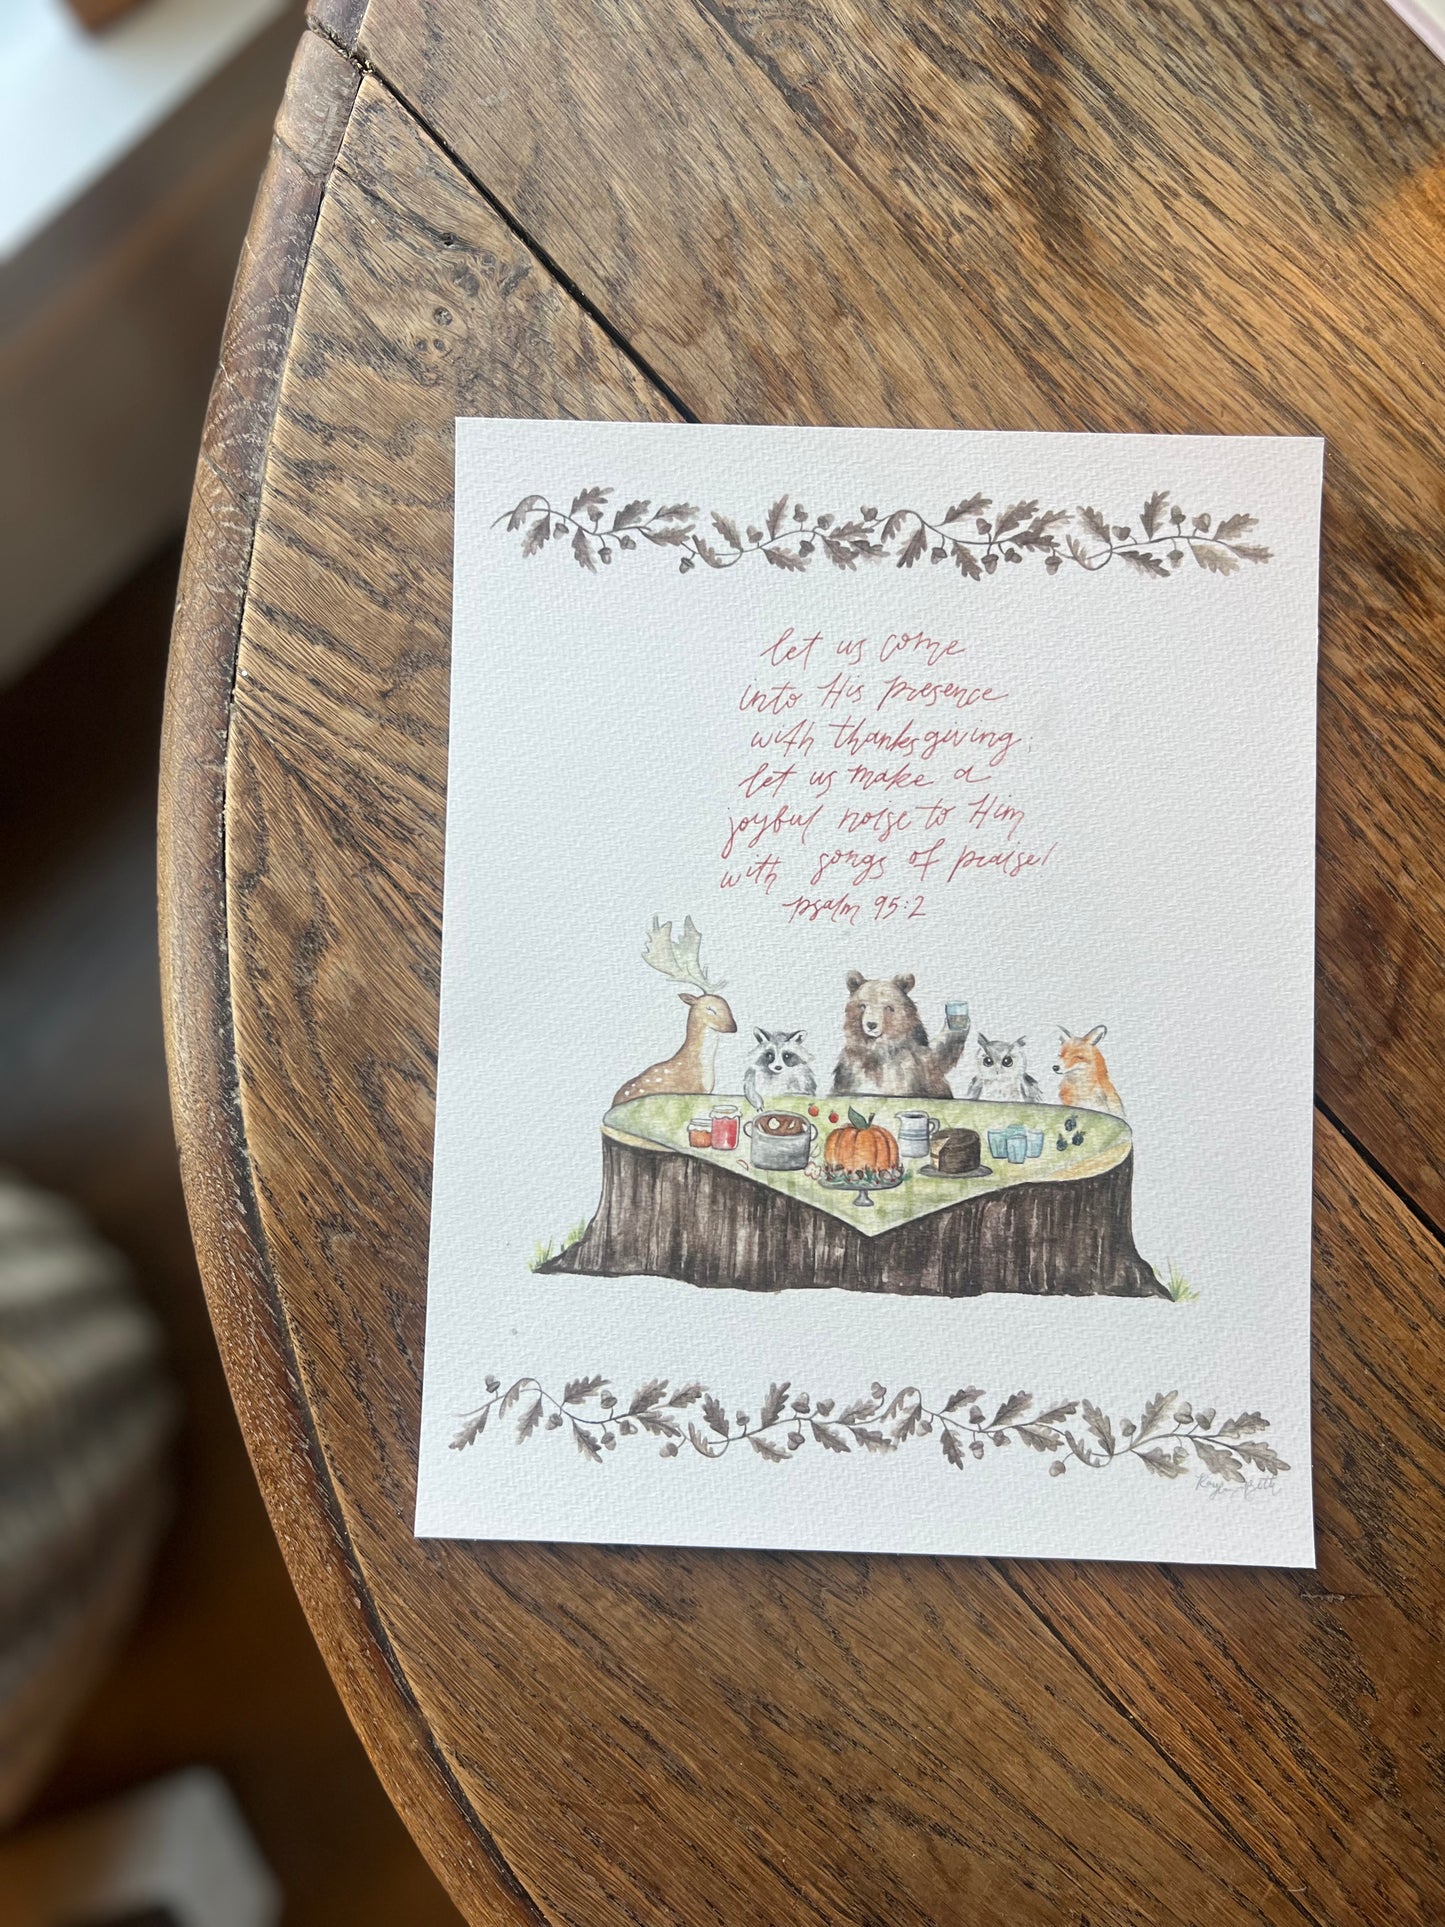 let us come
into His presence
with thanksgiving;
let us make a
joyful noise to Him
with songs of praise!
psalm 95:2